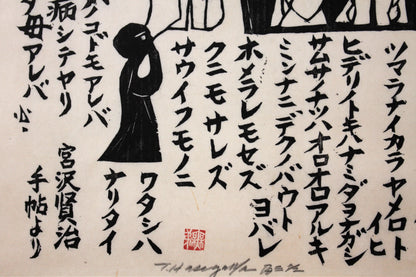 ツマラナイカラヤメロト
イヒ
ヒデリノトキハナミダヲナガシ
サムサノナツハオロオロアルキ
ミンナニデクノバウト
ヨバレ
ホメラレモセズ
クニモサレズ
サウイフモノニ
ワタシハ
ナリタイ
コドモアレバ
病シテヤリ
母アレバ
宮沢賢治
手帖より
T. Hasegawa